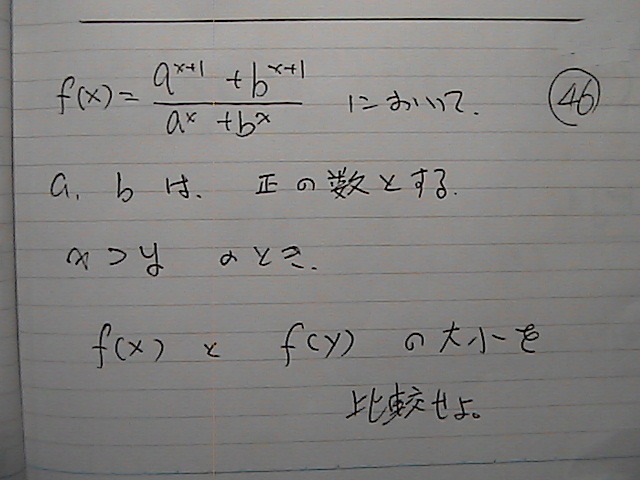 f(x) = \frac{a^{x+1} + b^{x+1}}{a^x + b^x} において. ㊻
a, b は、 正の数とする.
x > y のとき.
f(x) と f(y) の大小を
比較せよ。